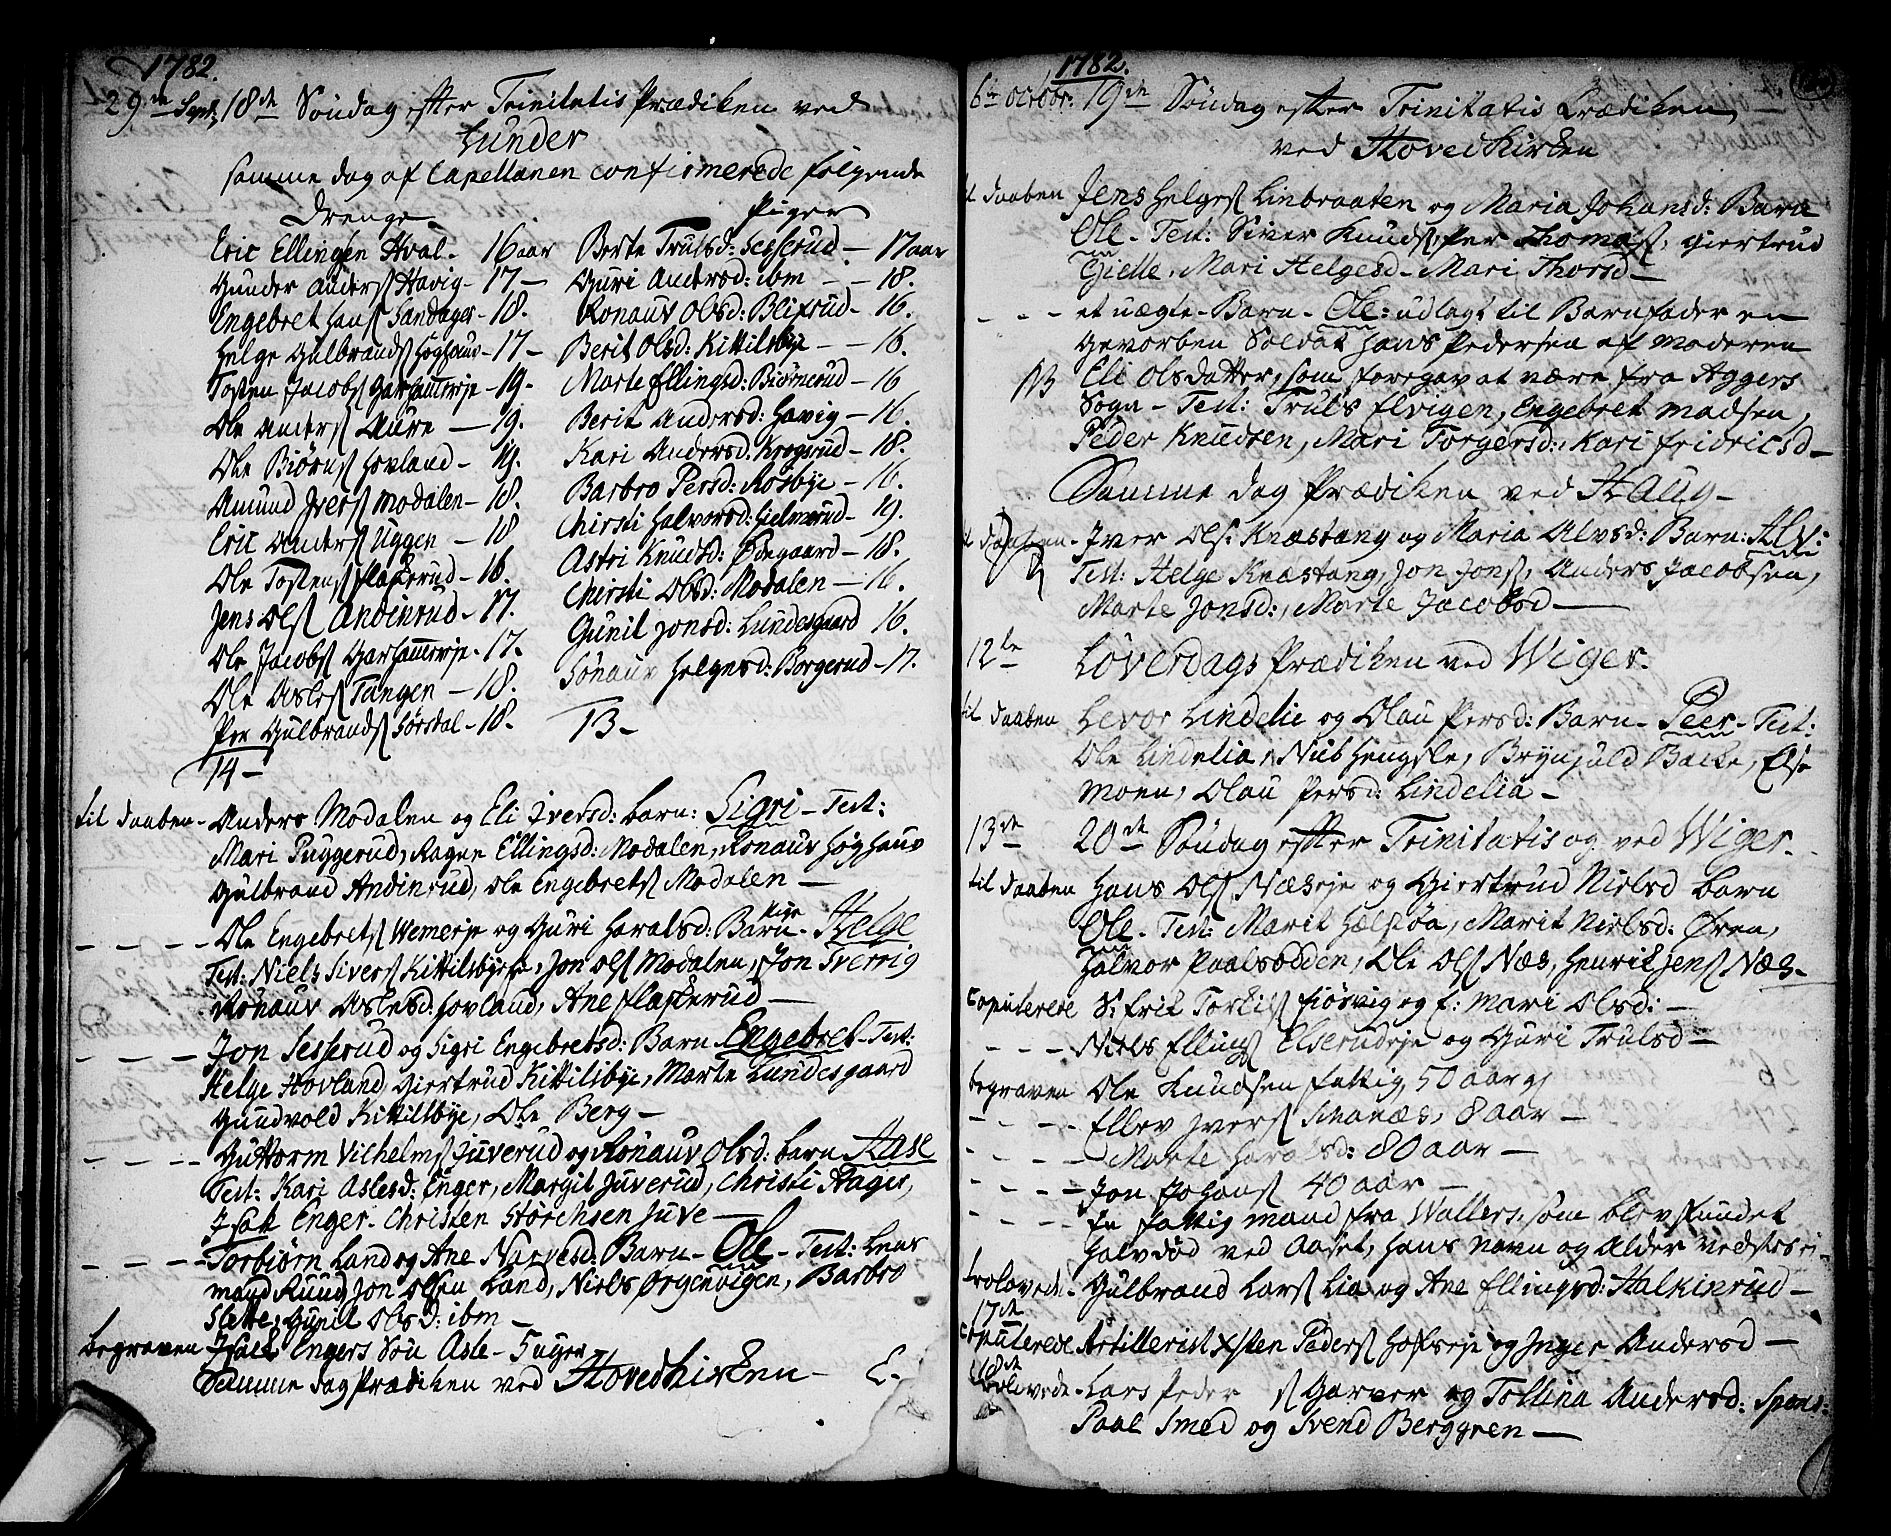 1782.
29de Sept: 18de Söndag efter Trinitatis Prædiken ved
Lunder
samme dag af Capellanen confirmerede følgende
Drenge
Eric Ellingsen Hval - 16 aar
Gunder Anders Havig - 17 -
Engebret Hans Sandager - 18.
Helge Gulbrands Høghaug - 17 -
Tosten Jacobs Garhammerje - 19 -
Ole Anders Aure - 19.
Ole Biørns Hovland - 19.
Amund Ivers Modalen - 18.
Eric Anders Uggen - 18
Ole Tostens Flaskerud - 16.
Jens Ols Andinrud - 17.
Ole Jacobs Garhammerje - 17.
Ole Asles Tangen - 18.
Per Gulbrands Sørsdal - 18.
14 -
Piger
Berte Trulsd: Sesserud - 17 aar
Guri Andersd: ibm - - 18.
Ronauv Olsd: Blixrud - 16.
Berit Olsd: Kittilsbye - - 16.
Marte Ellingsd: Biørnerud - 16
Berit Andersd: Havig - 16.
Kari Andersd: Krogsrud - 18.
Barbro Persd: Rosbye - 16.
Chirsti Halvorsd: Hielmerud - 19.
Astri Knudsd: Ødegaard - 18.
Chirsti Olsd: Modalen - 16.
Gunil Jonsd: Lundesgaard 16.
Sønauv Helgesd: Borgerud - 17.
13 -
til daaben - Anders Modalen og Eli Iversd: barn: Sigri - Test:
Mari Puggerud, Ragne Ellingsd: Modalen, Ronauv Høghauv
Gulbrand Andinrud, Ole Engebrets Modalen -
- - - - Ole Engebrets Wemerje og Guri Haralsd: Barn - Helge
Test: Niels Sivers Kittilsbye, Jon Ols Modalen, Jon Sverrig
Ronauv Aslesd: Hovland, Ane Flaskerud -
- - - - Jon Sesserud og Sigri Engebretsd: Barn Engebret - Test:
Helge Hovland, Giertrud Kittilsbye, Marte Lundesgaard
Gundvold Kittilsbye, Ole Berg -
- - - - Guttorm Vilhelms Juverud og Ronauv Olsd: barn Aase
Test: Kari Aslesd: Enger, Margit Juverud, Christi Hager,
Isak Enger - Christen Størchsen Juve -
- - - - Torbiørn Land og Ane Narvesd: Barn - Ole - Test: Lens
mand Ruud, Jon Olsen Land, Niels Ørgenvigen, Barbro
Slette, Gunil Olsd: ibm -
begraven Isach Engers Søn Asle - 5 uger
Samme dag Prædiken ved Hovedkirken -
1782.
6te Octobr: 19de Söndag efter Trinitatis Prædiken
ved Hovedkirken
t daaben Jens Helges Linbraaten og Maria Johansd: Barn
Ole - Test: Siver Knuds, Per Thomas, Giertrud
Gielle, Mari Helgesd - Mari Thorsd -
- - - et uægte Barn - Ole: udlagt til Barnfader en
Gevorben Soldat Hans Pedersen af moderen
NB Eli Olsdatter, som foregav at være fra Aggers
Sogn - Test: Truls Elvigen, Engebret Madsen,
Peder Knudsen, Mari Torgersd:, Kari Fridricsd -
Samme dag Prædiken ved Haug -
t daaben - Iver Ols: Knæstang og Maria Alvsd: Barn: Alv:
Test: Helge Knæstang, Jon Jons, Anders Jacobsen,
Marte Jonsd:, Marte Jacobsd -
12te Løverdags Prædiken ved Wiger.
til daaben Levor Lindelie og Olau Persd: Barn - Peer - Test:
Ole Lindelia, Niels Hengsle, Brynjuld Backe, Else
Moen, Olau Persd: Lindelia -
13de 20de Söndag efter Trinitatis og ved Wiger.
til daaben Hans Ols Næseje og Giertrud Nielsd barn
Ole - Test: Marit Hælsøa, Marit Nielsd: Øren,
Halvor Paalsødden, Ole Ols Næs, Henrik Jens Næs -
Copulerede S: Erik Torkils Fiørvig og f: Mari Olsd: -
- - - Niels Ellings Elserudeje og Guri Trulsd -
begraven Ole Knudsen fattig, 50 aar
- - - - Ellev Ivers Svanæs, 8 aar -
- - - - Marte Haralsd: 80 aar -
- - - - Jon Johans 40 aar -
- - - - En fattig mand fra Walders, som blev funden
halvdød ved Aaset, hans navn og Alder vedstes ei -
trolovede - Gulbrand Lars Lia og Ane Ellingsd: Halkinrud -
17de
Copulerede Artillerist Xsten Peders Hofseje og Inger Andersd -
18de
trolovede - Lars Peders Garver og Tollina Andersd: Spons:
Paal Smed og Svend Berggren -